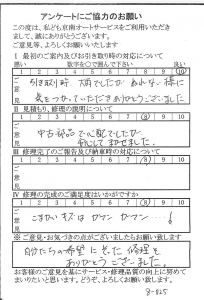 アンケートにご協力のお願い
この度は、私ども京南オートサービスをご利用いただき
まして、誠にありがとうございます。
ご意見等、よろしくお願いいたします
Ⅰ 最初のご案内及びお引き取り時の対応について
悪い 数字を○で囲んで下さい 良い
1 2 3 4 5 6 7 8 9 10
ご意見
引き取り時 大雨でしたが ぬれない様に
気をつかっていただきありがとうございました
Ⅱ 見積もり、修理の説明について
1 2 3 4 5 6 7 8 9 10
ご意見
中古部品で心配でしたが
安心して まかせました。
Ⅲ 修理完了のご報告及び納車時の対応について
1 2 3 4 5 6 7 8 9 10
ご意見
Ⅳ 修理の完成のご満足度はいかがですか
1 2 3 4 5 6 7 8 9 10
ご意見
こまかいキズは ガマン ガマン ----!
※ご意見・お気づきの点がございましたらお願い致します
自分たちの希望に添った修理を
ありがとうございました
お客様のご意見を基にサービス・修理品質の向上に努めて
まいりたいと思います。どうぞ、よろしくお願い致します。
8-025